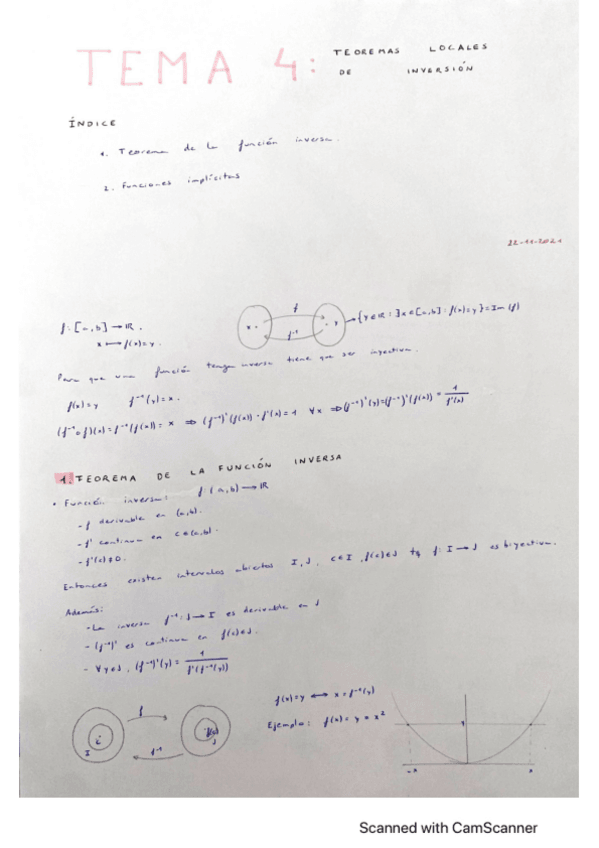 TEMA 4: TEOREMAS LOCALES
DE INVERSIÓN
ÍNDICE
1. Teorema de la función inversa.
2. Funciones implícitas
22-11-2021
f: [a,b] → ℝ.
x ⟼ f(x)=y.
f
x y → {y∈ℝ: ∃x∈[a,b]: f(x)=y}=Im(f)
f⁻¹
Para que una función tenga inversa tiene que ser inyectiva.
f(x)=y f⁻¹(y)=x.
(f⁻¹∘f)(x)=f⁻¹(f(x))=x ⇒ (f⁻¹)'(f(x))·f'(x)=1 ∀x ⇒ (f⁻¹)'(y)=(f⁻¹)'(f(x))=1/f'(x)
1. TEOREMA DE LA FUNCIÓN INVERSA
• Función inversa: f:(a,b)→ℝ
- f derivable en (a,b).
- f' continua en c∈(a,b).
- f'(c)≠0.
Entonces existen intervalos abiertos I, J, c∈I, f(c)∈J tq f: I→J es biyectiva.
Además:
- La inversa f⁻¹: J→I es derivable en J
- (f⁻¹)' es continua en f(c)∈J.
- ∀y∈J, (f⁻¹)'(y)=1/f'(f⁻¹(y))
f
I c f(c) J
f⁻¹
f(x)=y ⟷ x=f⁻¹(y)
Ejemplo: f(x)=y=x²
y
-x x
Scanned with CamScanner